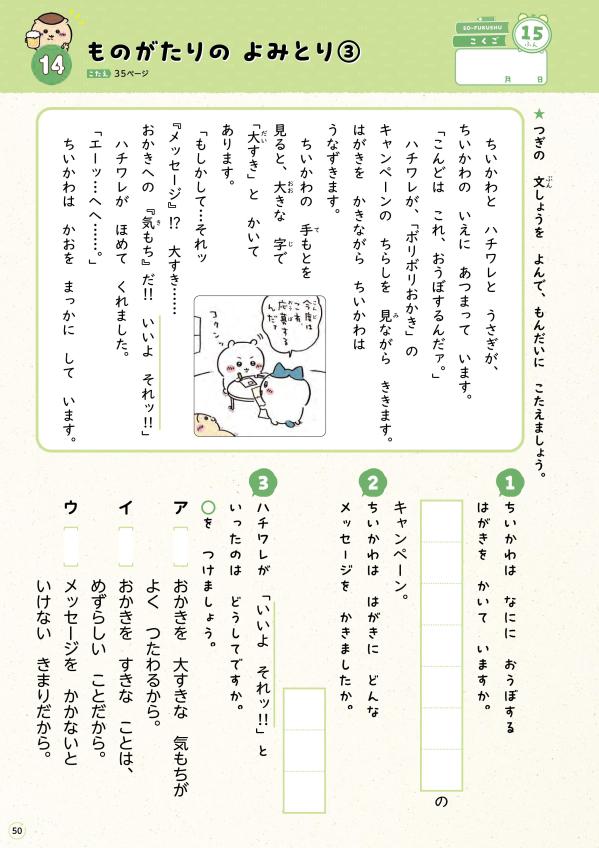 14
ものがたりの よみとり③
こたえ 35ページ
SO-FUKUSHU
こくご
15
ふん
月 日
★つぎの 文しょうを よんで、もんだいに こたえましょう。
ぶん
ちいかわと ハチワレと うさぎが、
ちいかわの いえに あつまって います。
「こんどは これ、おうぼするんだァ。」
ハチワレが、「ポリポリおかき」の
キャンペーンの ちらしを 見ながら ききます。
み
はがきを かきながら ちいかわは
うなずきます。
ちいかわの 手もとを
て
見ると、大きな 字で
おお
じ
「大すき」と かいて
だい
あります。
「もしかして…それッ
『メッセージ』!? 大すき……
おかきへの 『気もち』だ!! いいよ それッ!!」
き
ハチワレが ほめて くれました。
「エーッ…へへ……。」
ちいかわは かおを まっかに して います。
今度は
こんど
これ
応募する
おうぼ
んだァ
コクンッ
1
ちいかわは なにに おうぼする
はがきを かいて いますか。
の
キャンペーン。
2
ちいかわは はがきに どんな
メッセージを かきましたか。
3
ハチワレが 「いいよ それッ!!」と
いったのは どうしてですか。
○を つけましょう。
ア おかきを 大すきな 気もちが
よく つたわるから。
イ おかきを すきな ことは、
めずらしい ことだから。
ウ メッセージを かかないと
いけない きまりだから。
50